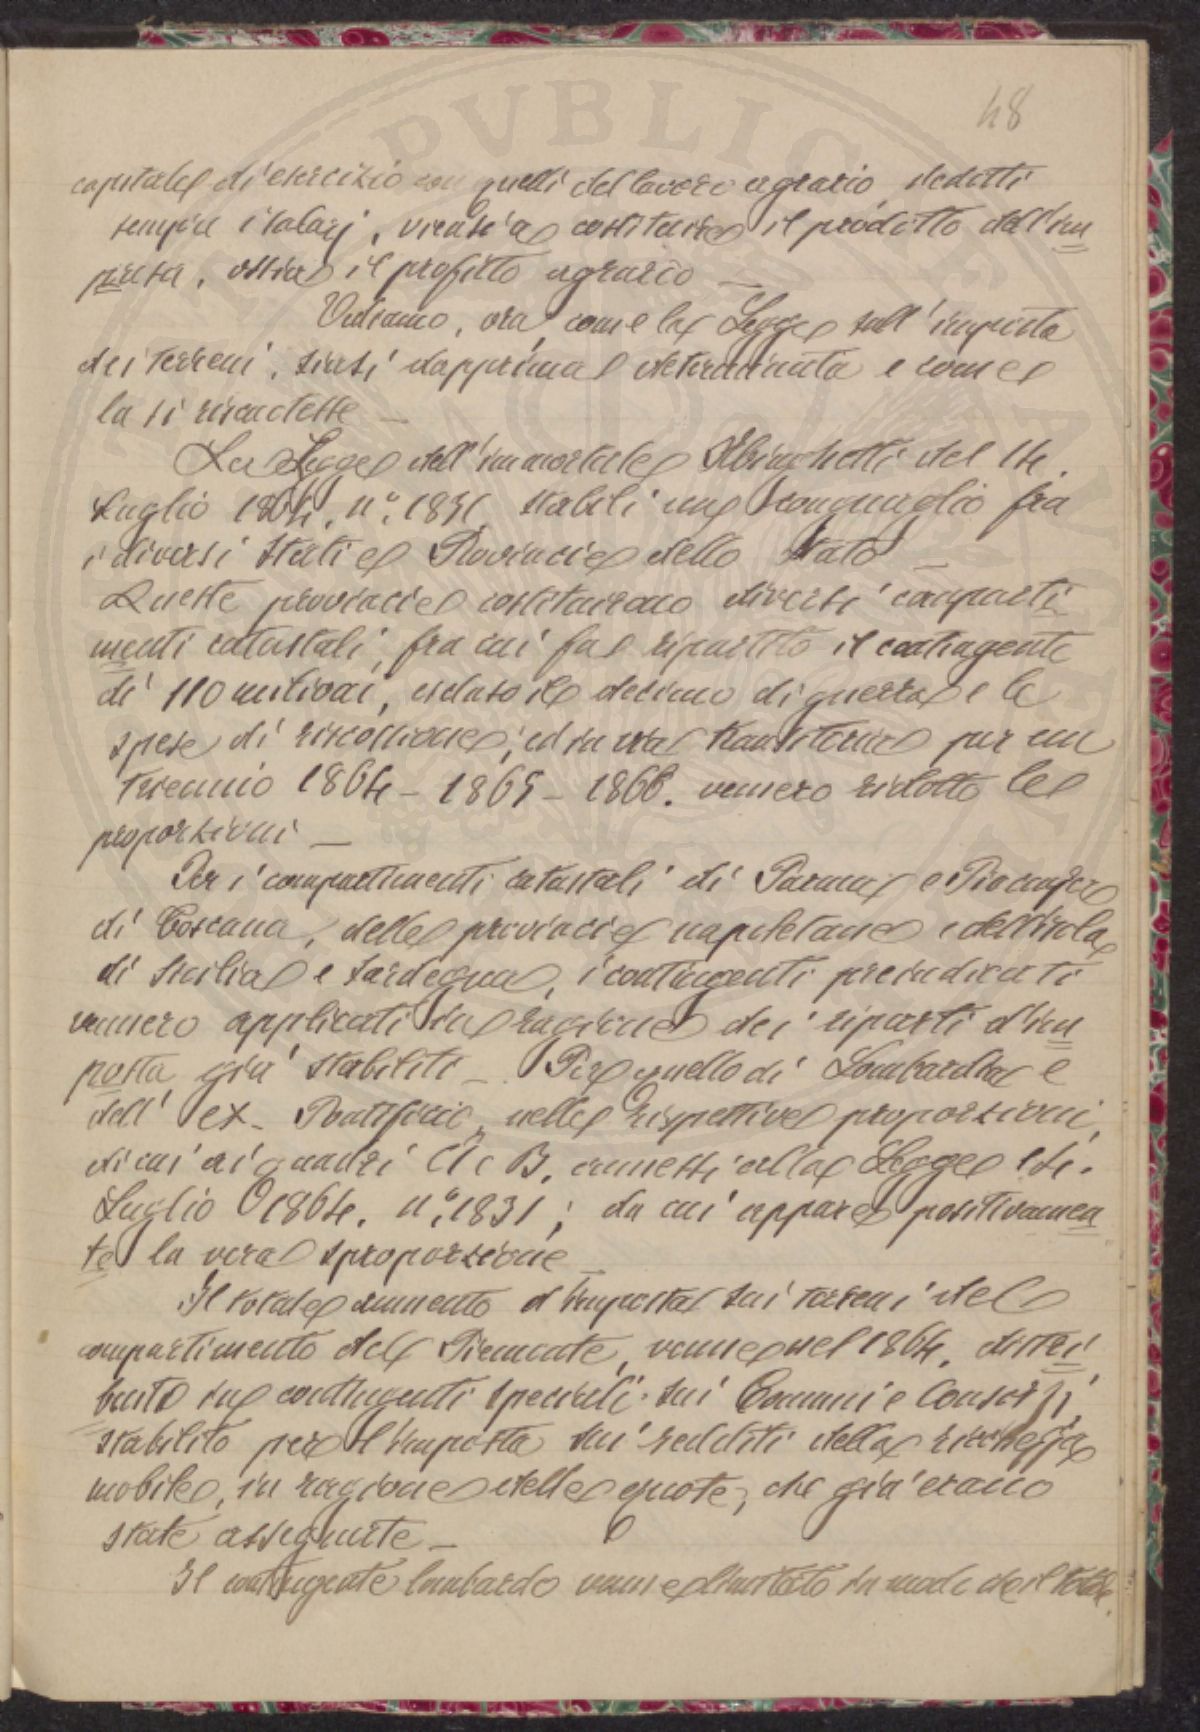 48
capitale d'esercizio con quelli del lavoro agrario, dedotti
sempre i salarj, viensi a costituire il prodotto dell'im
presa, ossia il profitto agrario —
Vediamo, ora, come la Legge sull'imposta
dei terreni, siasi dapprima determinata e come
la si riscuotesse —
La Legge dell'immortale Minghetti del 14.
Luglio 1864, n.° 1831, stabilì un conguaglio fra
i diversi Stati e Provincie dello Stato —
Queste provincie costituirono diversi comparti
menti catastali, fra cui fu ripartito il contingente
di 110 milioni, escluso il decimo di guerra e le
spese di riscossione; ed in via transitoria per un
triennio 1864 - 1865 - 1866. vennero ridotte le
proporzioni —
Per i compartimenti catastali di Parma e Piacenza
di Toscana, delle provincie napoletane e dell'isola
di Sicilia e Sardegna, i contingenti preindicati
vennero applicati in ragione dei riparti d'im
posta già stabiliti — Per quello di Lombardia e
dell' ex - Pontificio, nelle rispettive proporzioni,
di cui ai quadri A e B, annessi alla Legge 14.
Luglio 1864. n.° 1831; da cui appare positivamen
te la vera sproporzione —
Il totale aumento d'imposta sui terreni del
compartimento del Piemonte, venne nel 1864. distri
buito in contingenti speciali sui Comuni e Consorzj,
stabilito per l'imposta sui redditi della ricchezza
mobile, in ragione delle quote, che già erano
state assegnate —
Il contingente lombardo venne limitato in modo che il totale